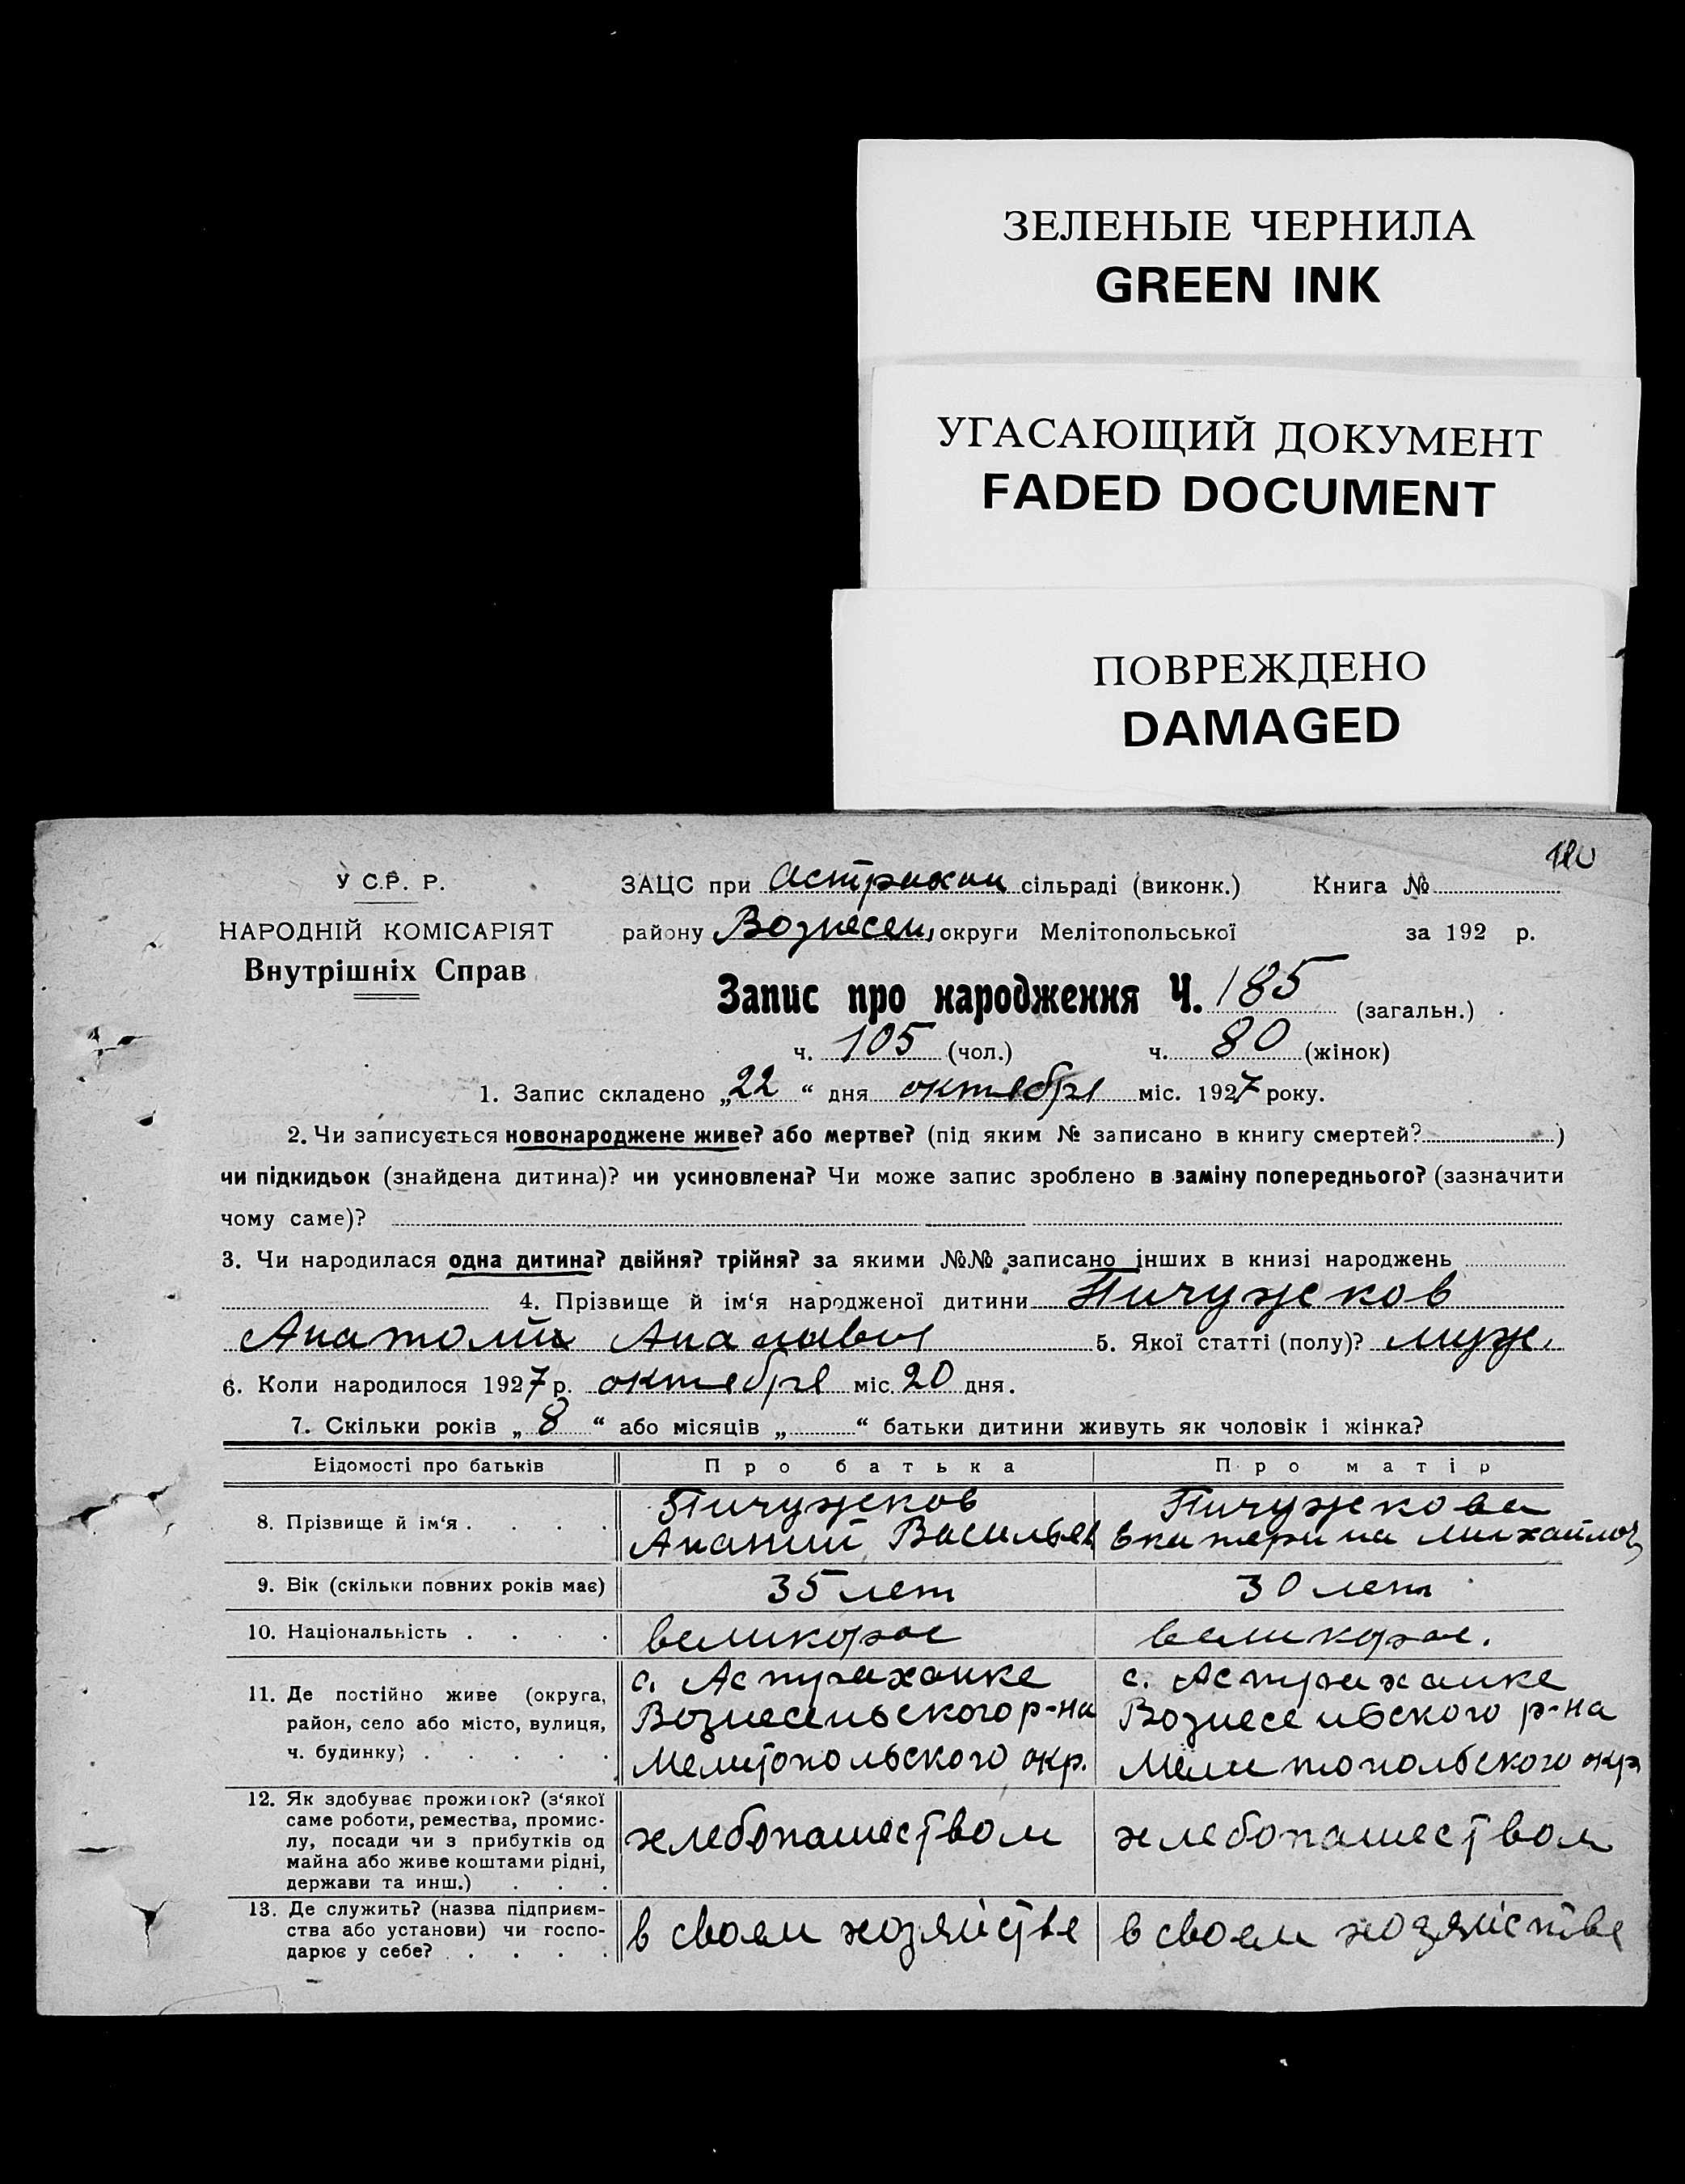 ЗЕЛЕНЫЕ ЧЕРНИЛА
GREEN INK
УГАСАЮЩИЙ ДОКУМЕНТ
FADED DOCUMENT
ПОВРЕЖДЕНО
DAMAGED
У С.Р. Р.
НАРОДНІЙ КОМІСАРІЯТ
Внутрішніх Справ
ЗАЦС при Астрахан сільраді (виконк.) Книга №
району Вознесен. округи Мелітопольської за 192 р.
Запис про народження Ч. 185 (загальн.)
ч. 105 (чол.) ч. 80 (жінок)
1. Запис складено „22“ дня октября міс. 1927 року.
2. Чи записується новонароджене живе? або мертве? (під яким № записано в книгу смертей?)
чи підкидьок (знайдена дитина)? чи усиновлена? Чи може запис зроблено в заміну попереднього? (зазначити
чому саме)?
3. Чи народилася одна дитина? двійня? трійня? за якими №№ записано інших в книзі народжень
4. Прізвище й ім‘я народженої дитини Пичужков
Анатолий 5. Якої статті (полу)? муж.
6. Коли народилося 1927 р. октября міс. 20 дня.
7. Скільки років „8“ або місяців „ “ батьки дитини живуть як чоловік і жінка?
Відомості про батьків Про батька Про матір
8. Прізвище й ім‘я . . . . Пичужков Пичужкова
Ананий Васильев Екатерина Михайлов
9. Вік (скільки повних років має) 35 лет 30 лет
10. Національність . . . . великорос великорос.
11. Де постійно живе (округа, район, село або місто, вулиця, ч. будинку) . . . . .
с. Астраханке с. Астраханке
Вознесеньского р-на Вознесеньского р-на
Мелитопольского окр. Мелитопольского окр
12. Як здобуває прожиток? (з‘якої
саме роботи, ремества, промис-
лу, посади чи з прибутків од
майна або живе коштами рідні,
держави та инш.) . . .
хлебопашеством хлебопашеством
13. Де служить? (назва підприєм-
ства або установи) чи госпо-
дарює у себе? . . . .
в своем хозяйстве в своем хозяйстве